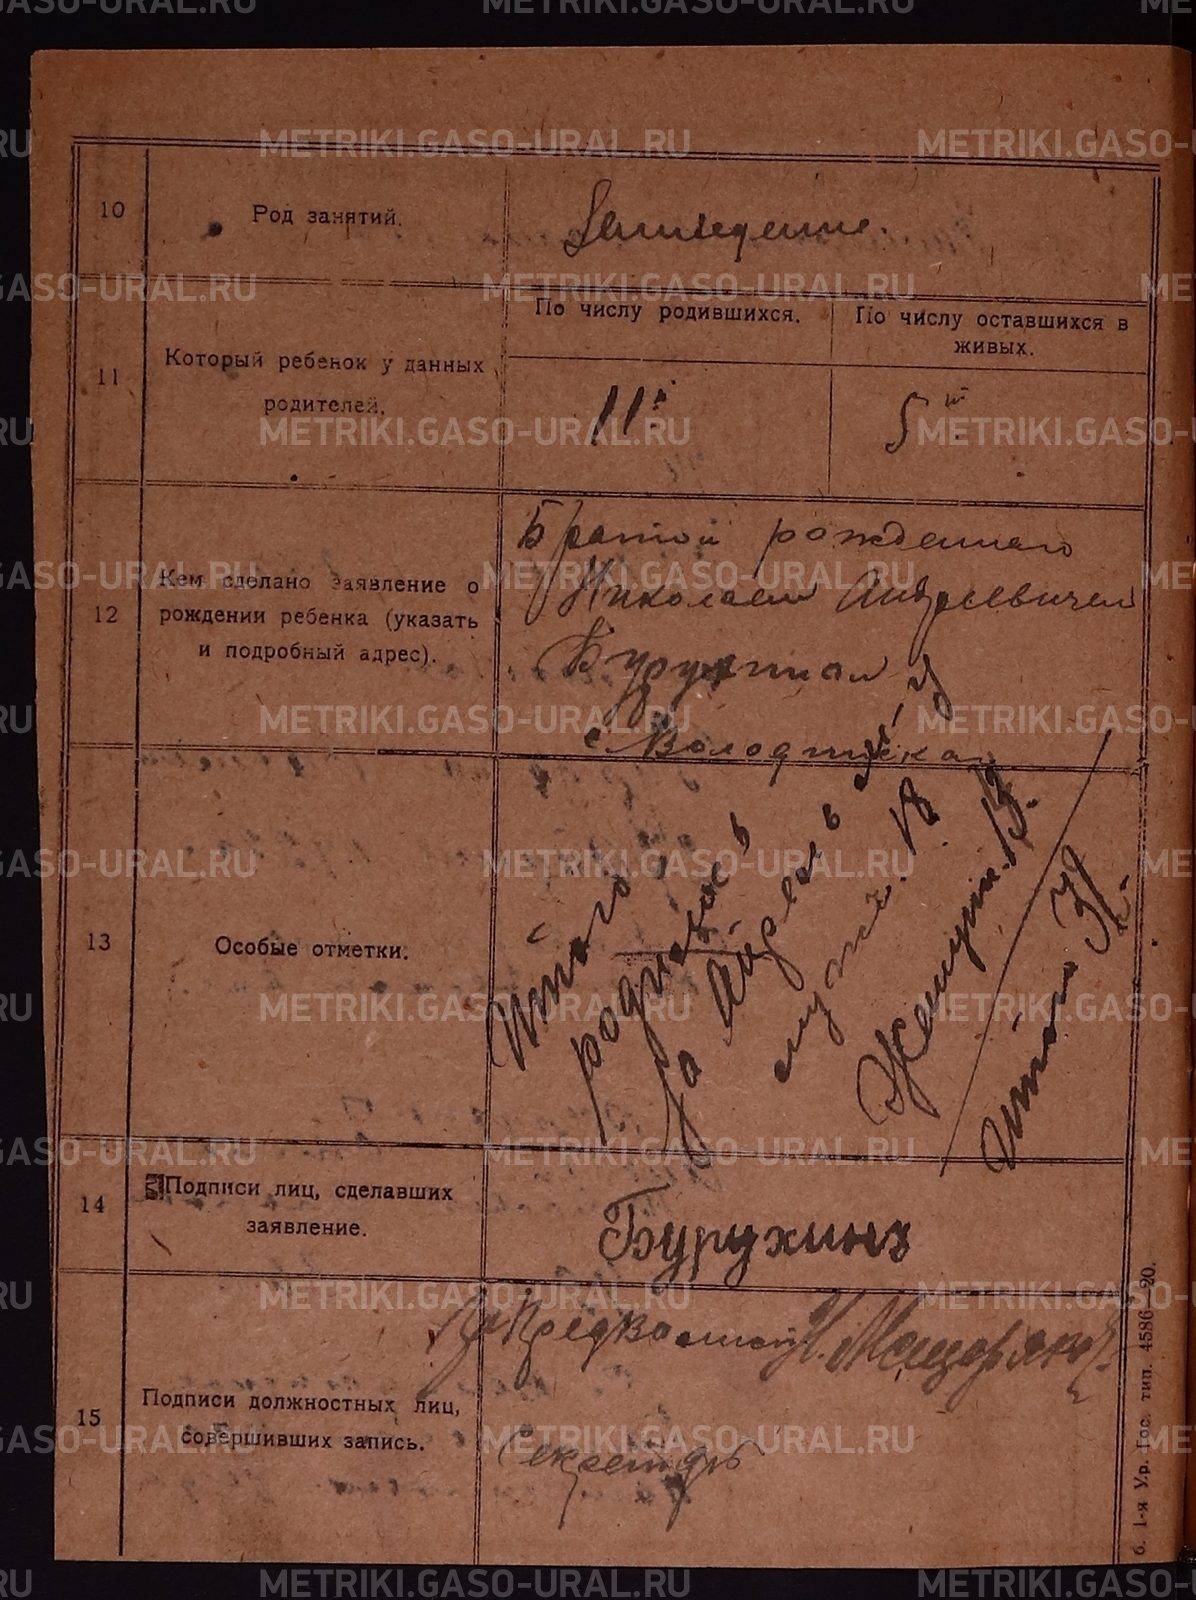 METRIKI.GASO-URAL.RU
10
Род занятий.
Земледелие.
11
Который ребенок у данных
родителей.
По числу родившихся.
По числу оставшихся в
живых.
11й
5й
12
Кем сделано заявление о
рождении ребенка (указать
и подробный адрес).
Братом рожденного
Николаем Андреевичем
Бурухиным
с.
13
Особые отметки.
Итого
родилось
за Апрель
муж. 18
Женщин. 13.
Итого 31.
14
Подписи лиц, сделавших
заявление.
Бурухинъ
15
Подписи должностных лиц,
совершивших запись.
Секретарь
б. 1-я Ур. Гос. тип. 4586—20.